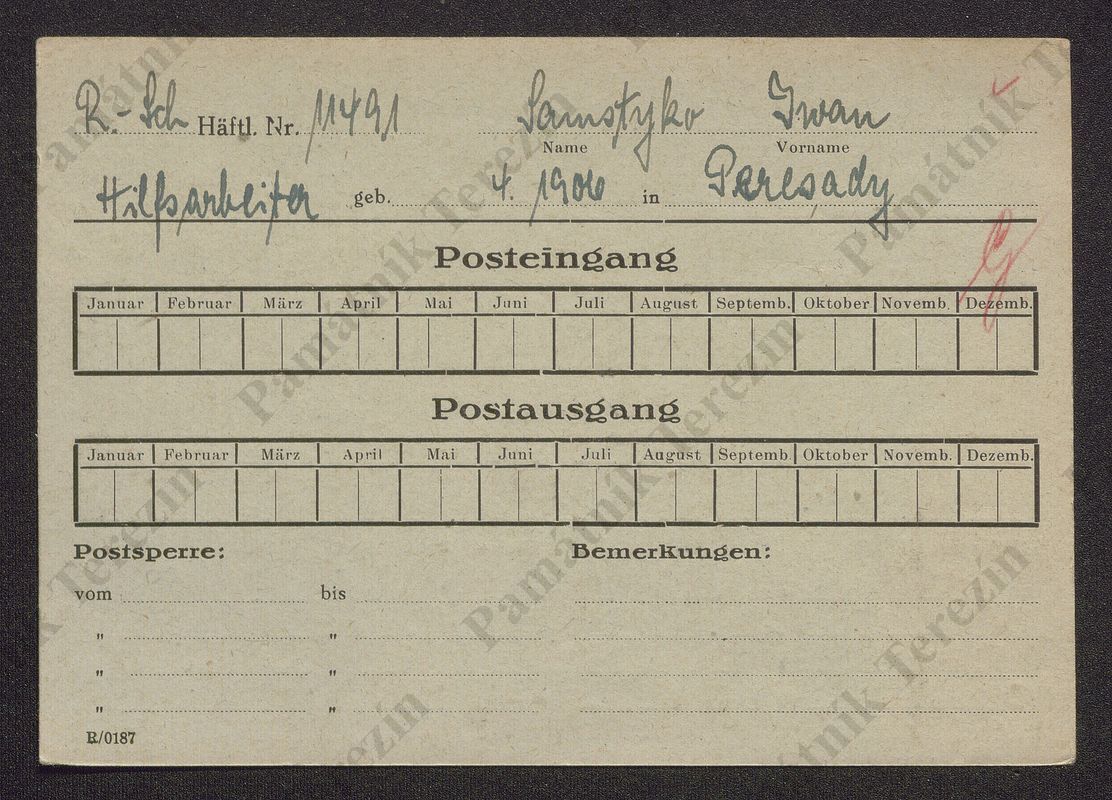 R.-Sch Häftl. Nr. 11491 Samstyko Iwan
Name Vorname
Hilfsarbeiter geb. 4. 1906 in Peresady
Posteingang
Januar Februar März April Mai Juni Juli August Septemb. Oktober Novemb. Dezemb.
Postausgang
Januar Februar März April Mai Juni Juli August Septemb. Oktober Novemb. Dezemb.
Postsperre: Bemerkungen:
vom bis
" "
" "
" "
R/0187
Památník Terezín